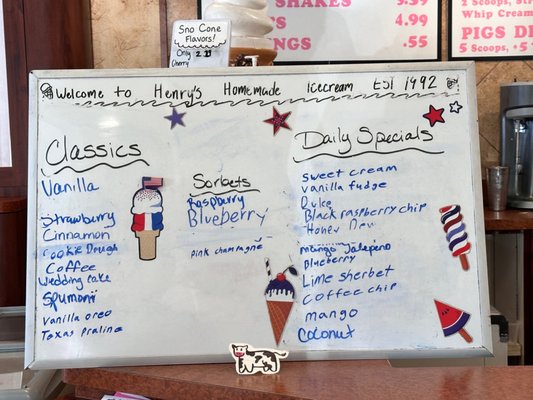 Sno Cone
Flavors!
Only
Cherry
SHAKES
4.99
.55
Whip Cream
PIGS
5 Scoops,
Welcome to Henry's Homemade Icecream EST 1992
Classics
Vanilla
Strawberry
Cinnamon
Cookie Dough
Coffee
Wedding cake
Spumoni
Vanilla oreo
Texas praline
Sorbets
Raspburry
Blueberry
pink champagne
Daily Specials
sweet cream
vanilla fudge
Black raspberry chip
Honey Dew
mango Jalapeno
Blueberry
Lime sherbet
coffee chip
mango
Coconut